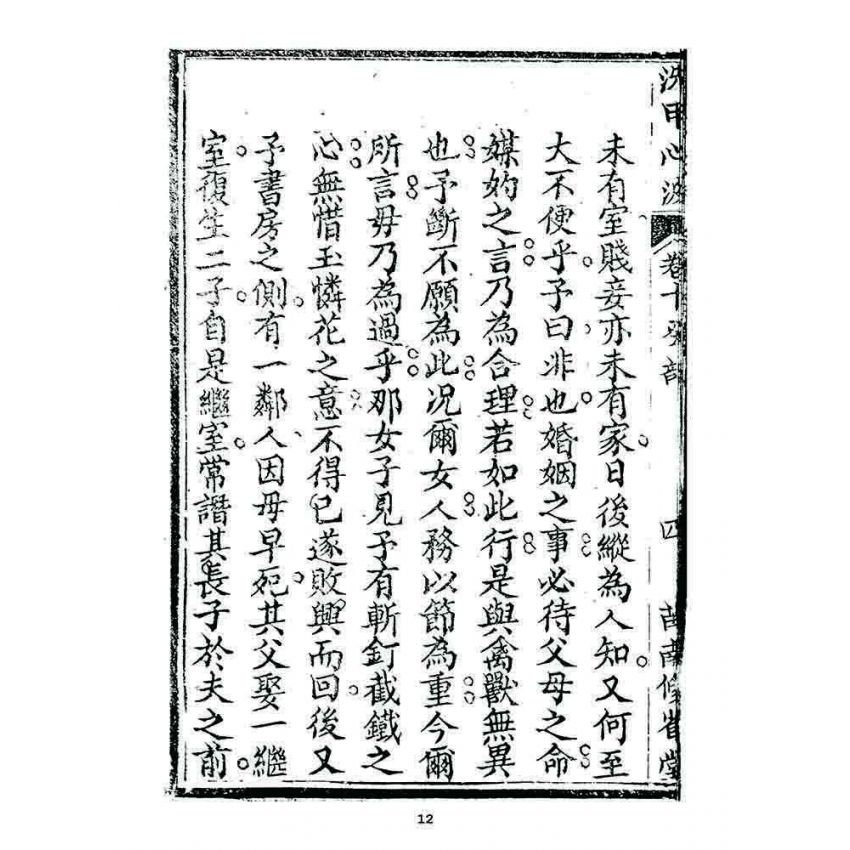 洗甲心波 卷十 四
未有室賤妾亦未有家日後縱為人知又何至
大不便乎予曰非也婚姻之事必待父母之命
媒妁之言乃為合理若如此行是與禽獸無異
也予斷不願為此況爾女人務以節為重今爾
所言毋乃為過乎那女子見予有斬釘截鐵之
心無惜玉憐花之意不得已遂敗興而回後又
予書房之側有一鄰人因母早死其父娶一繼
室復生二子自是繼室常譖其長子於夫之前
12